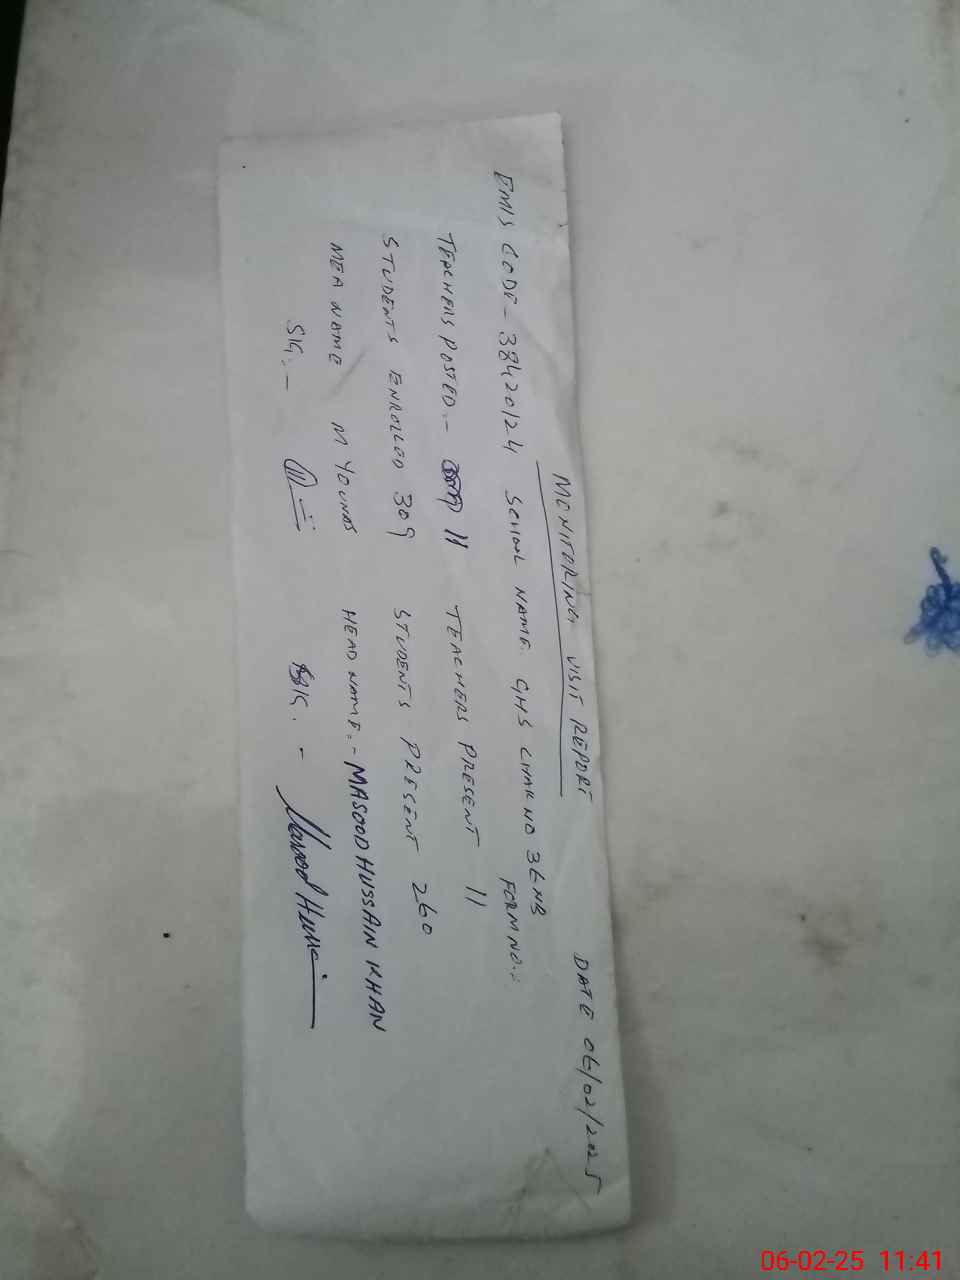 MONITORING VISIT REPORT DATE 06/02/2025
EMIS CODE - 38420124 SCHOOL NAME. GHS CHAK NO 36NB FORM NO.:
TEACHERS POSTED - 11 TEACHERS PRESENT 11
STUDENTS ENROLLED 309 STUDENTS PRESENT 260
MEA NAME M YOUNAS HEAD NAME:- MASOOD HUSSAIN KHAN
SIG. - SIG. - Masood Hussain
06-02-25 11:41